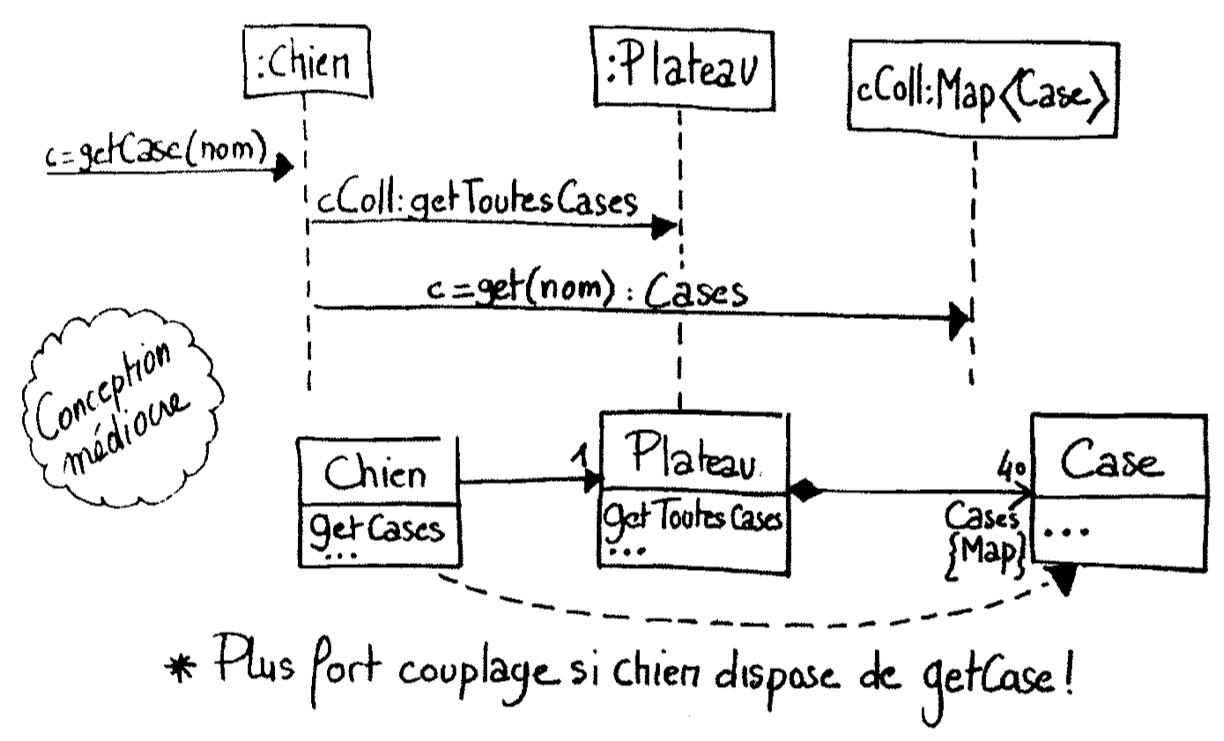 :Chien
:Plateau
cColl:Map<Case>
c=getCase(nom)
cColl:getToutesCases
c=get(nom) : Cases
Conception
médiocre
Chien
getCases
...
1
Plateau
getToutesCases
...
40
Cases
{Map}
Case
...
* Plus fort couplage si chien dispose de getCase!